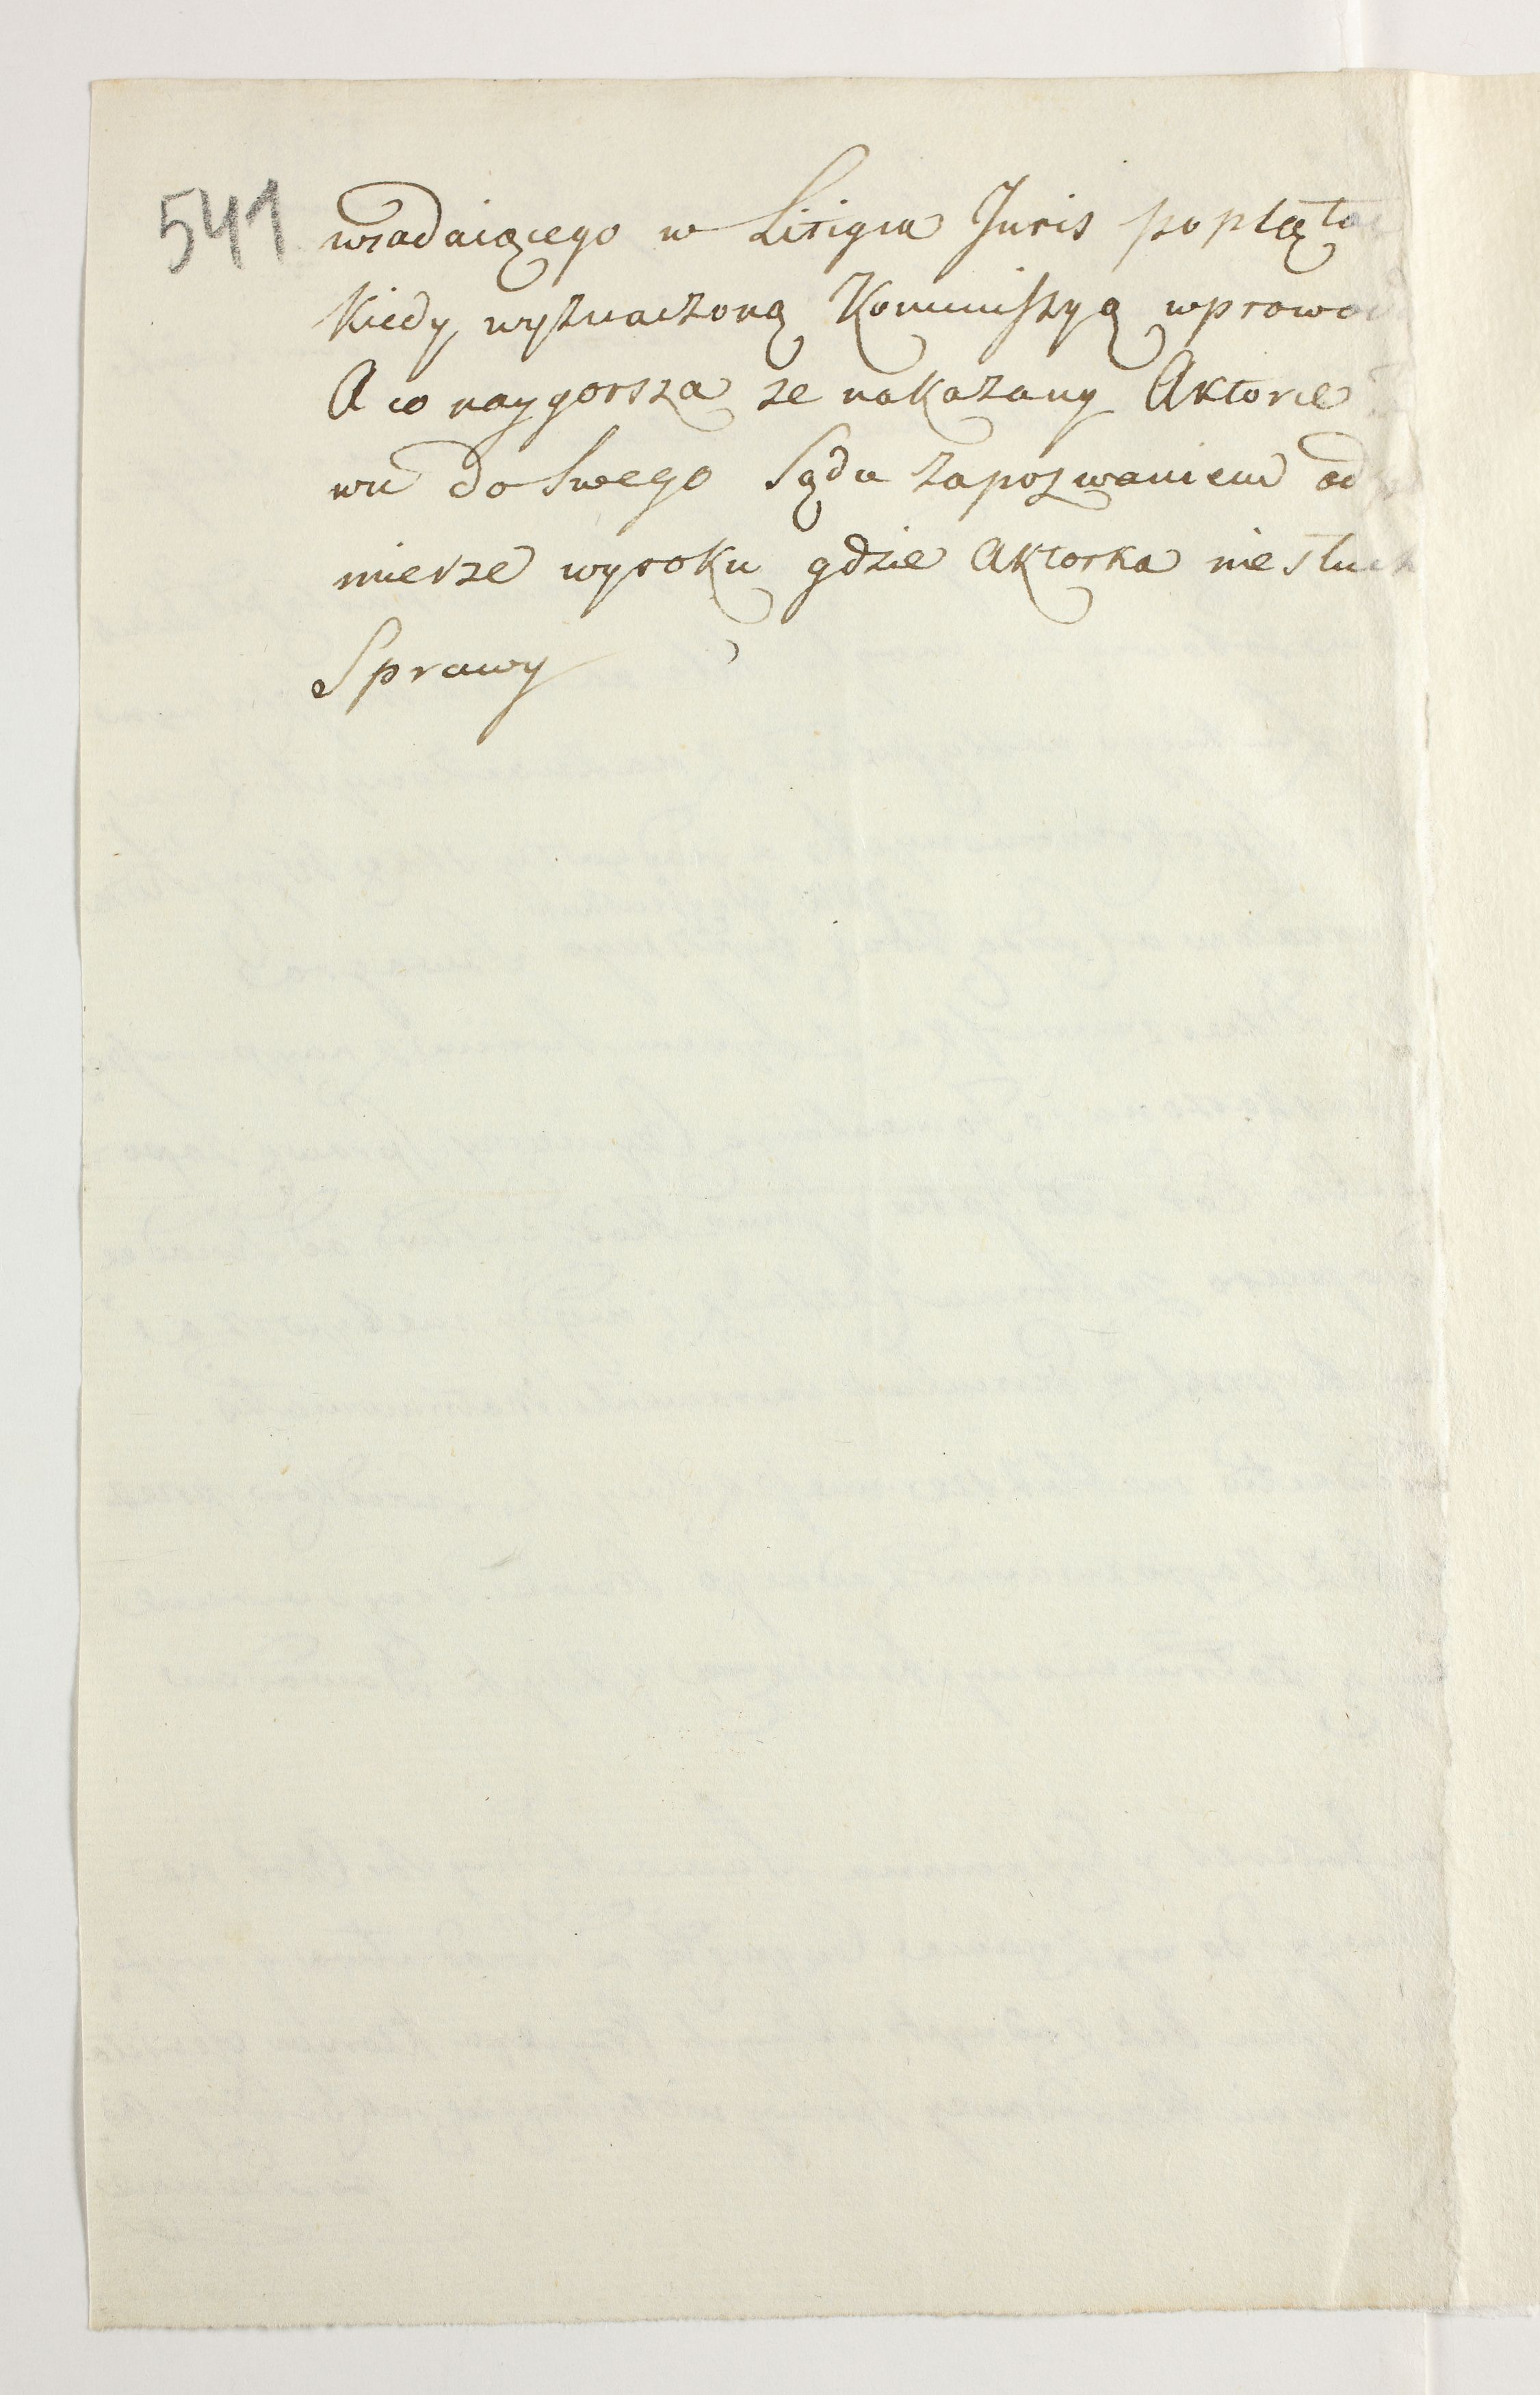 541
wsadaiącego w Litigia Juris popląta
Kiedy wyznaczoną Kommissyą wprowa
A co naygorsza ze nakazany Aktorce
wu do Swego Sądu zapozwaniem od
mierze wyroku gdzie Aktorka nie słuch
Sprawy